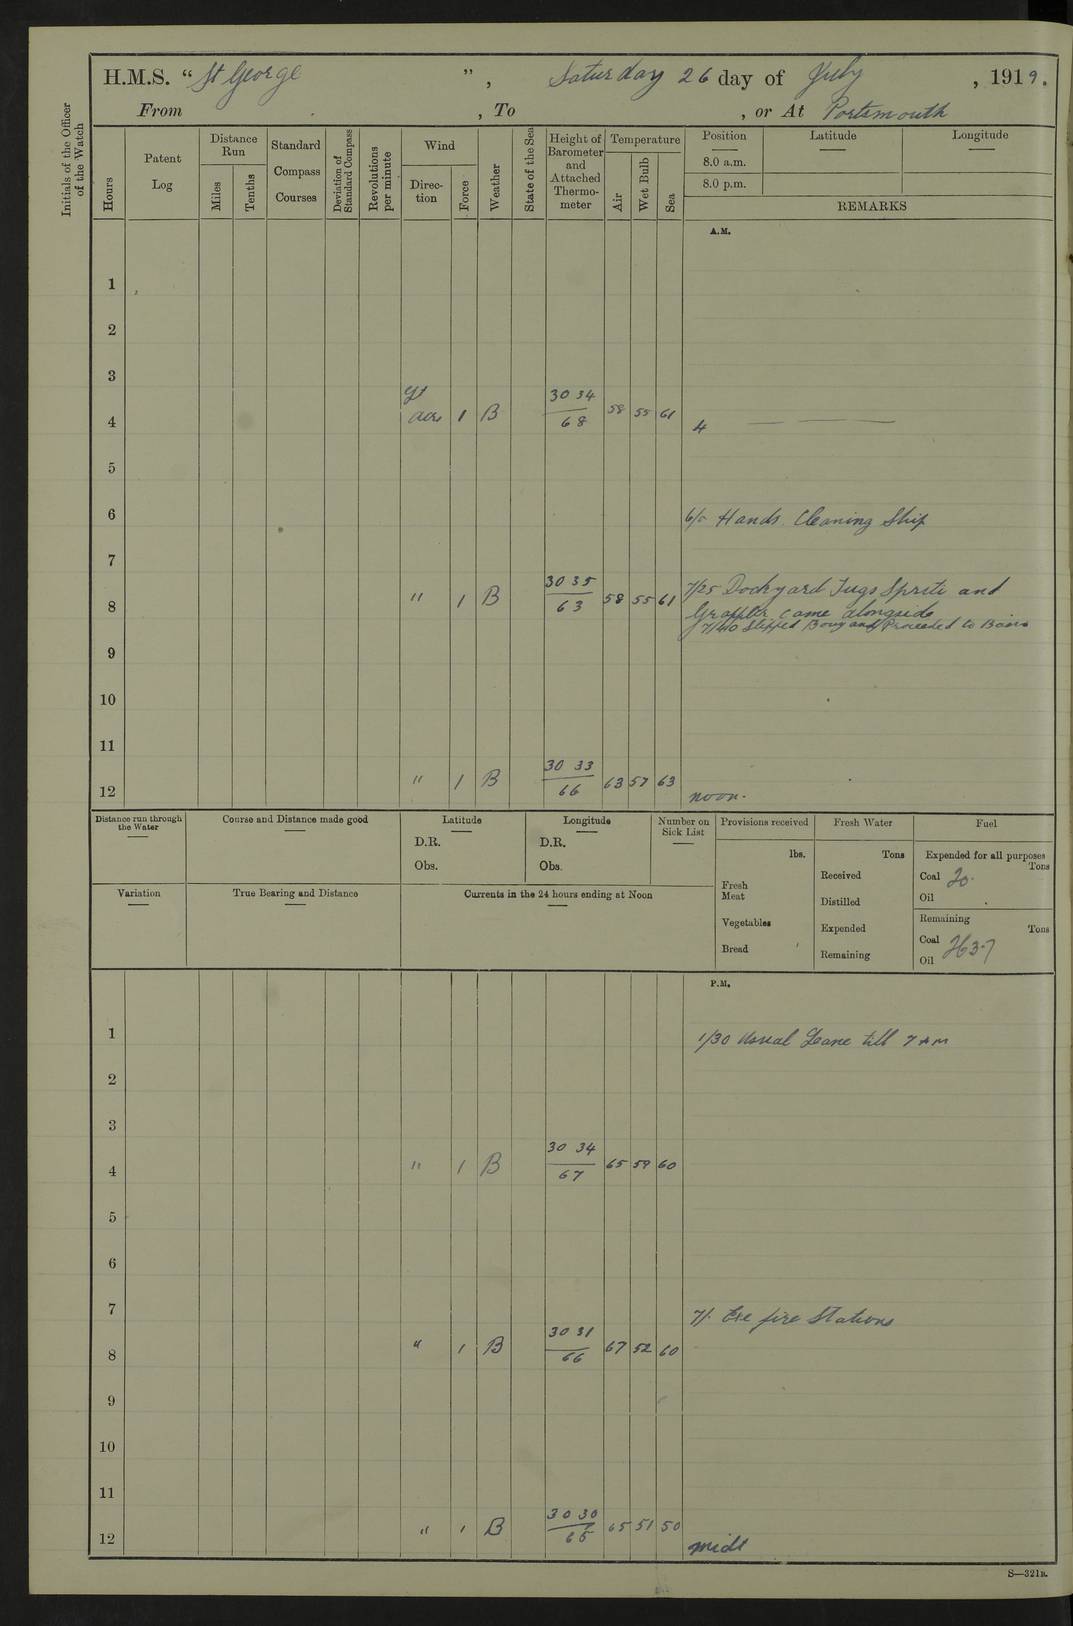 H.M.S. “St George”, Saturday 26 day of July, 1919.
From , To , or At Portsmouth
Initials of the Officer of the Watch
Hours
Patent Log
Distance Run
Miles
Tenths
Standard Compass Courses
Deviation of Standard Compass
Revolutions per minute
Wind
Direction
Force
Weather
State of the Sea
Height of Barometer and Attached Thermometer
Temperature
Air
Wet Bulb
Sea
Position Latitude Longitude
8.0 a.m.
8.0 p.m.
REMARKS
A.M.
1
2
3
4 1 B 30 34 / 68 58 55 61 4
5
6 6/0 Hands Cleaning Ship
7
7/25 Dockyard Tugs Sprite and
8 " 1 B 30 35 / 63 58 55 61 Grappler came alongside
7/40 Slipped Buoy and Proceeded to Basin
9
10
11
12 " 1 B 30 33 / 66 63 57 63 noon.
Distance run through the Water
Course and Distance made good
Latitude
D.R.
Obs.
Longitude
D.R.
Obs.
Number on Sick List
Provisions received
lbs.
Fresh Meat
Vegetables
Bread
Fresh Water
Tons
Received
Distilled
Expended
Remaining
Fuel
Expended for all purposes
Tons
Coal 20.
Oil
Remaining
Tons
Coal 263.7
Oil
Variation
True Bearing and Distance
Currents in the 24 hours ending at Noon
P.M.
1 1/30 Usual Leave till 7 AM
2
3
4 " 1 B 30 34 / 67 65 59 60
5
6
7 7/. Exe fire Stations
8 " 1 B 30 31 / 66 67 52 60
9
10
11
12 " 1 B 30 30 / 65 65 51 50 midt
S—321B.